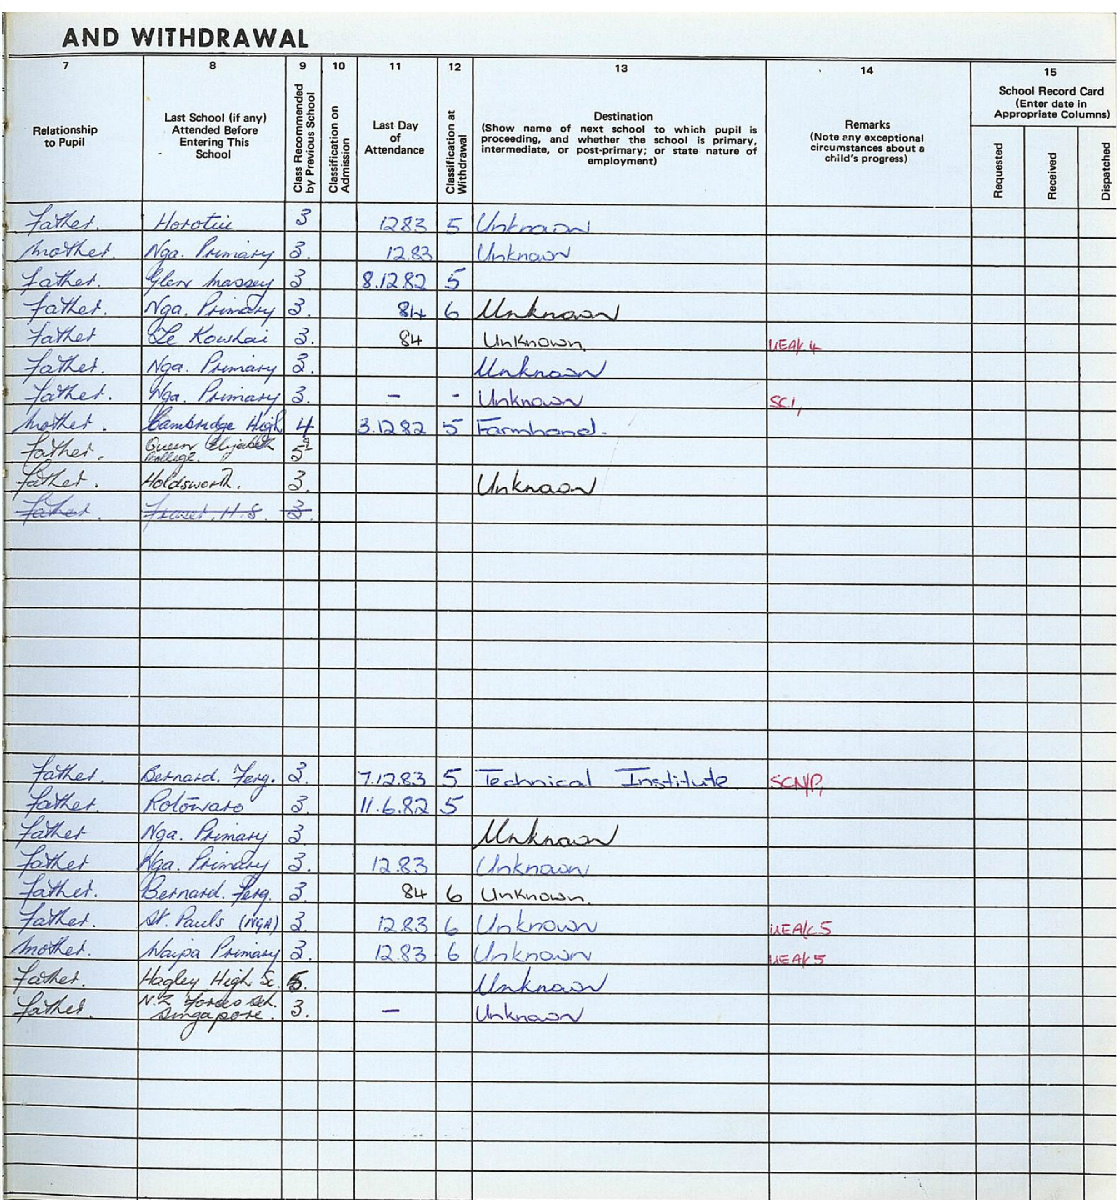 AND WITHDRAWAL
7 8 9 10 11 12 13 14 15
Relationship to Pupil
Last School (if any) Attended Before Entering This School
Class Recommended by Previous School
Classification on Admission
Last Day of Attendance
Classification at Withdrawal
Destination
(Show name of next school to which pupil is proceeding, and whether the school is primary, intermediate, or post-primary; or state nature of employment)
Remarks
(Note any exceptional circumstances about a child's progress)
School Record Card
(Enter date in Appropriate Columns)
Requested
Received
Dispatched
Father. Horotiu 3 12.83 5 Unknown
Mother. Nga. Primary 3. 12.83 Unknown
Father. Glen Massey 3. 8.12.82 5
Father. Nga. Primary 3. 84 6 Unknown
Father Te Kowhai 3. 84 Unknown. UEA/c 4
Father. Nga. Primary 3. Unknown
Father. Nga. Primary 3. - - Unknown SC1,
Mother. Cambridge High 4 3.12.82 5 Farmhand.
Father. Queen Elizabeth College.
Father. Holdsworth. 3. Unknown
Father. Fraser H.S. 3.
Father. Bernard. Ferg. 3. 7.12.83 5 Technical Institute SCN/P,
Father. Rotowaro 3. 11.6.82 5
Father Nga. Primary 3. Unknown
Father Nga. Primary 3. 12.83 Unknown
Father. Bernard. Ferg. 3. 84 6 Unknown.
Father. St. Pauls (NGA) 3. 12.83 6 Unknown UEA/c 5
Mother. Waipa Primary 3. 12.83 6 Unknown UEA/c 5
Father. Hagley High Sc. 5. Unknown
Father. N.Z Forces Sch. Singapore. 3. - Unknown